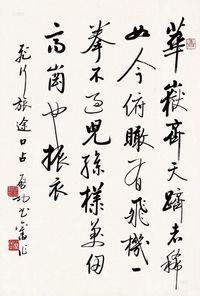 華嶽齊天躋者稀
如今俯瞰有飛機一
拳不過兒孫樣萬仞
高崗也振衣
飛行旅途口占 啟功書舊作